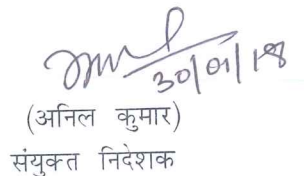 30/01/18
(अनिल कुमार)
संयुक्त निदेशक